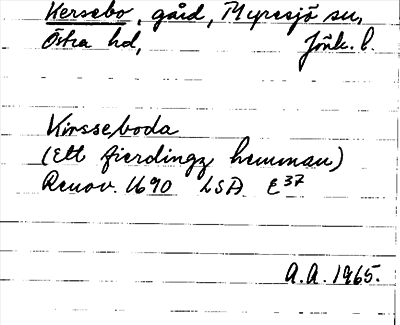 Kersebo, gård, Myresjö sn,
Östra hd, Jönk. l.
Kirsseboda
(Ett fierdingz hemman)
Renov. 1690 LSA E37
A.A. 1965.